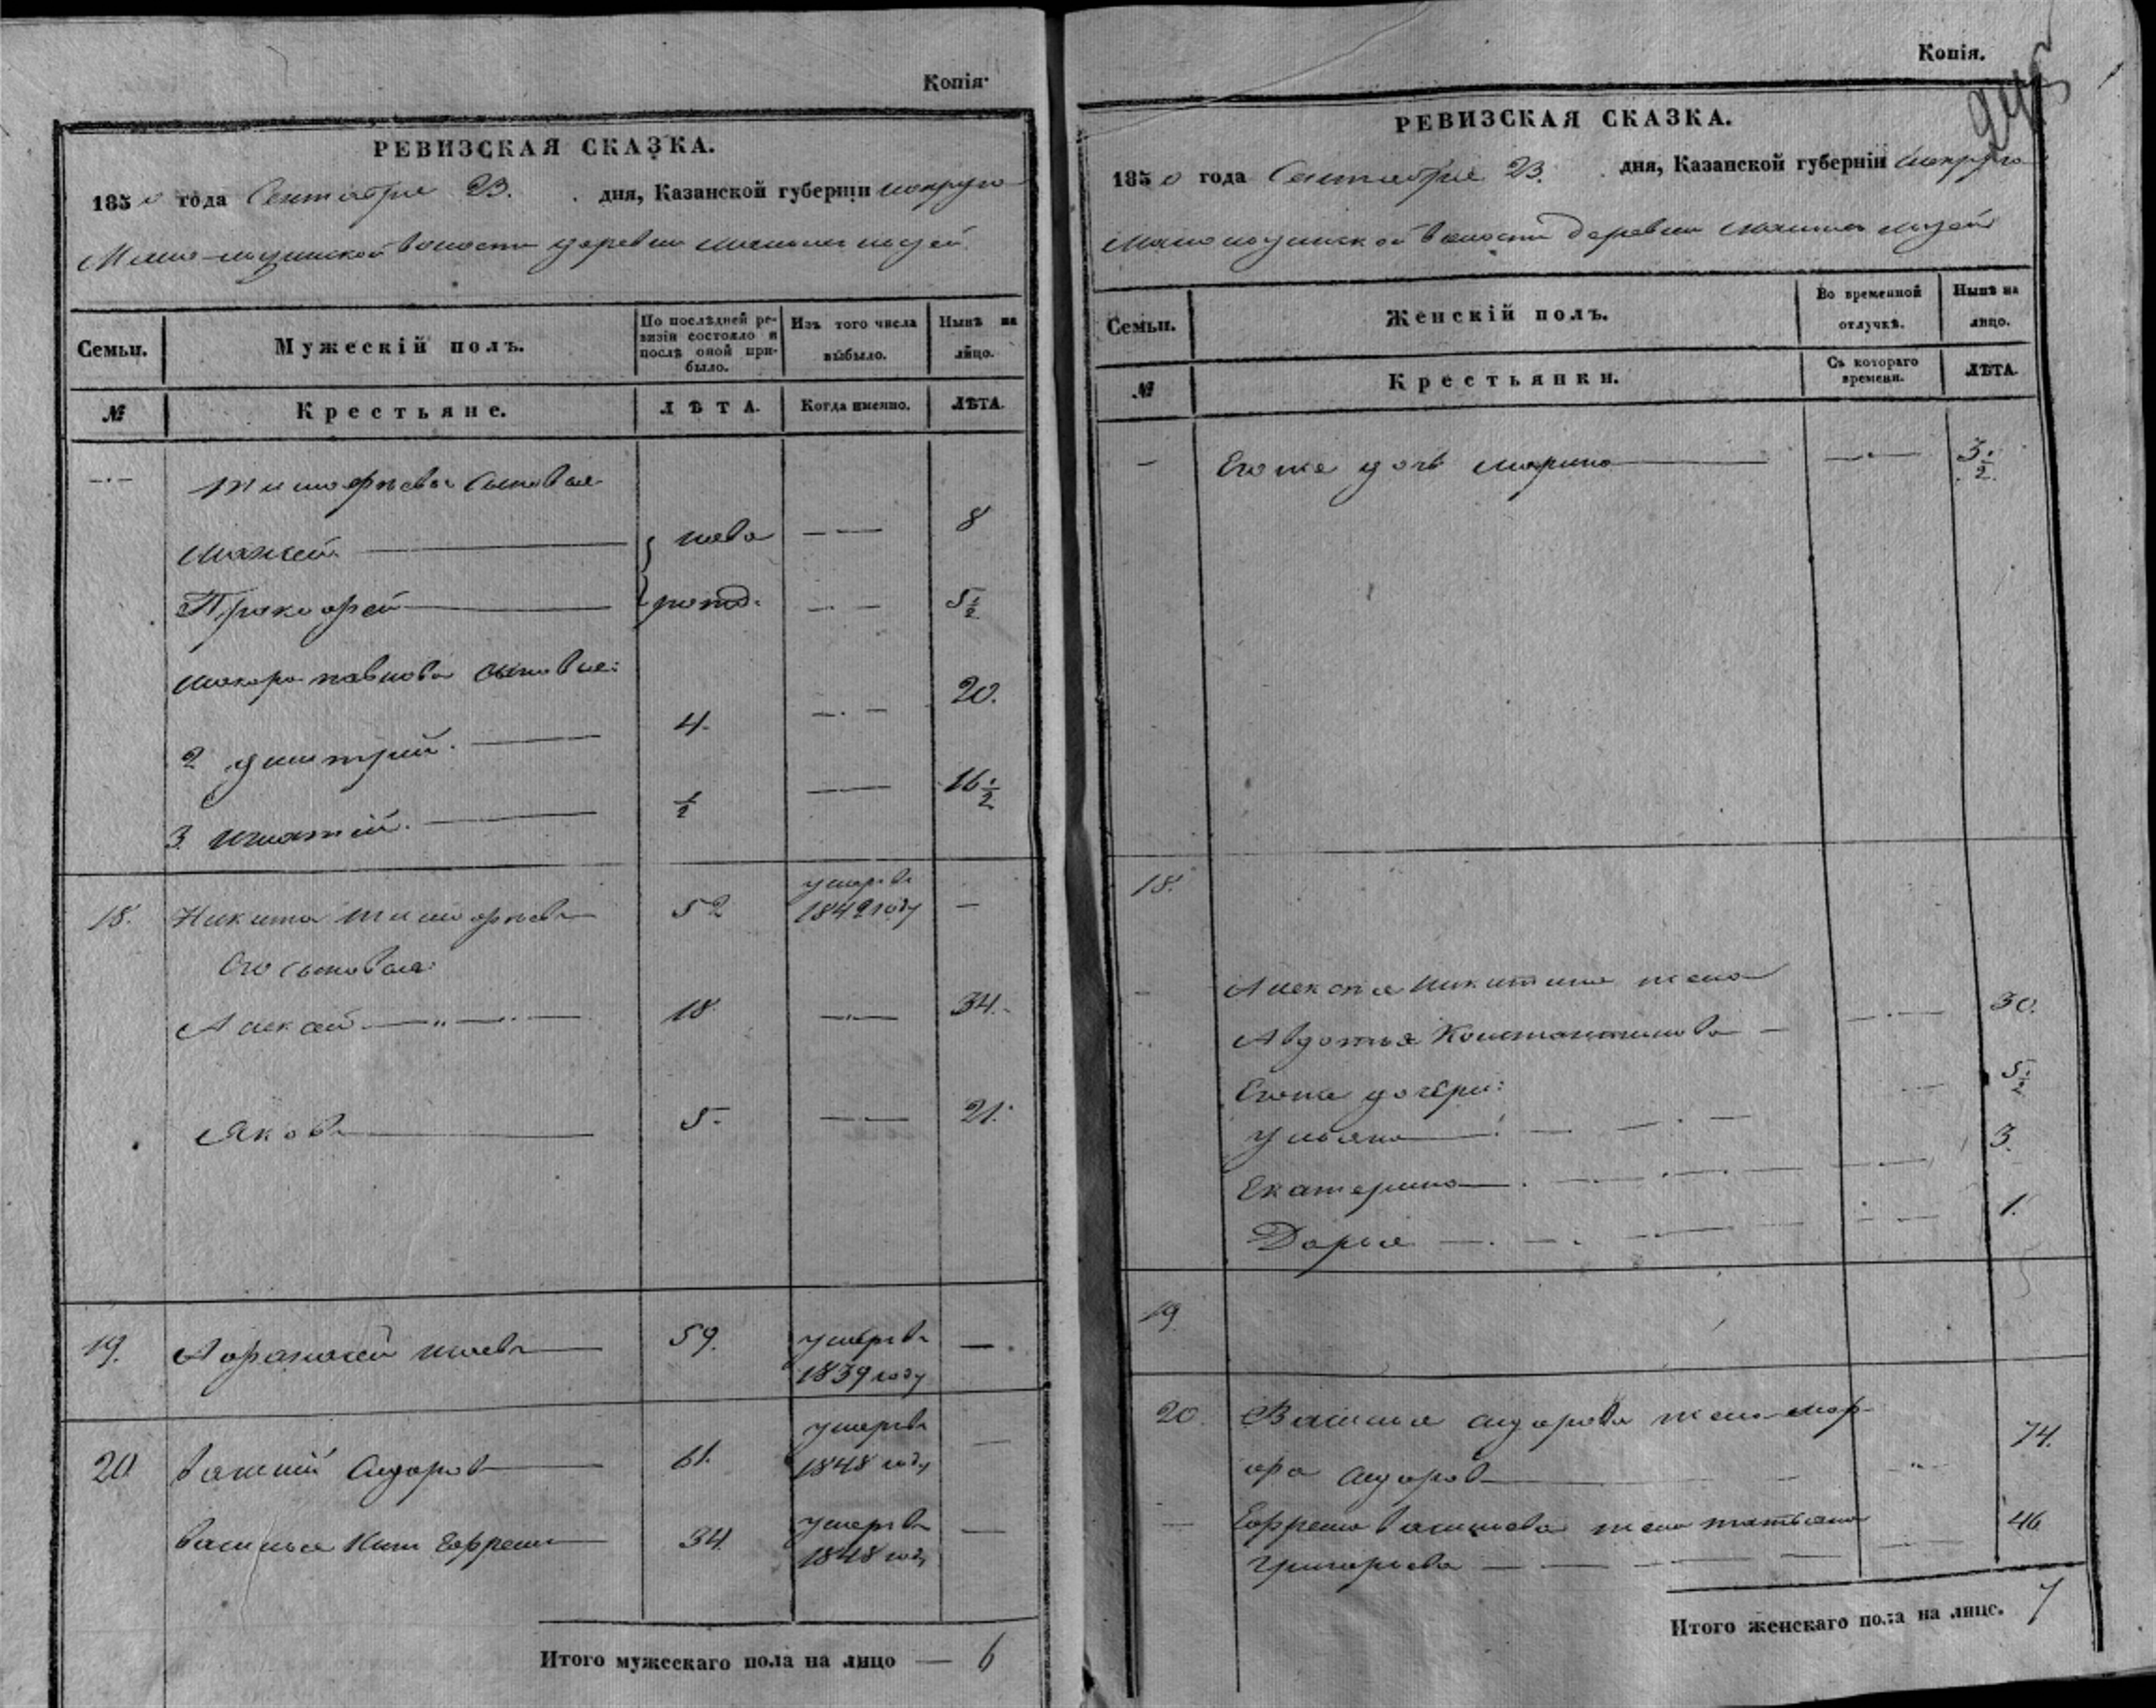 Копія.
РЕВИЗСКАЯ СКАЗКА.
1850 года Сентября 23. дня, Казанской губерніи
волости деревни
Семьи.
Мужескій полъ.
По послѣдней ревизіи состояло и послѣ оной прибыло.
Изъ того числа выбыло.
Нынѣ на лицо.
№
Крестьяне.
ЛѢТА.
Когда именно.
ЛѢТА.
Тимофѣева сыновья
ново 8
Прокофей рожд. 5 1/2
Макара Павлова сыновья:
2 Дмитрий. 4. 20.
3 Игнатий. 1/2 16 1/2
18. Никита Тимофѣевъ 52 умеръ въ 1842 году —
Его сыновья:
Алексей 18 34.
Яковъ 5. 21.
19. Афанасей 59. умеръ въ 1839 году —
20 Василий Сидоровъ 61. умеръ въ 1848 году —
Василья сынъ Ефремъ 34. умеръ въ 1848 году —
Итого мужескаго пола на лицо — 6
Копія.
РЕВИЗСКАЯ СКАЗКА.
1850 года Сентября 23. дня, Казанской губерніи
волости деревни
Семьи.
Женскій полъ.
Во временной отлучкѣ.
Нынѣ на лицо.
№
Крестьянки.
Съ котораго времени.
ЛѢТА.
— Его же дочь Марина 3 1/2
18.
Алексея Никитина жена
Авдотья Константинова — 30.
Его же дочери:
Ульяна 5 1/2
Екатерина 3.
Дарья 1.
19
20. Василья Сидорова жена Мар-
фа Сидорова 74.
Ефрема Васильева жена Татьяна
Григорьева 46
Итого женскаго пола на лице. 7